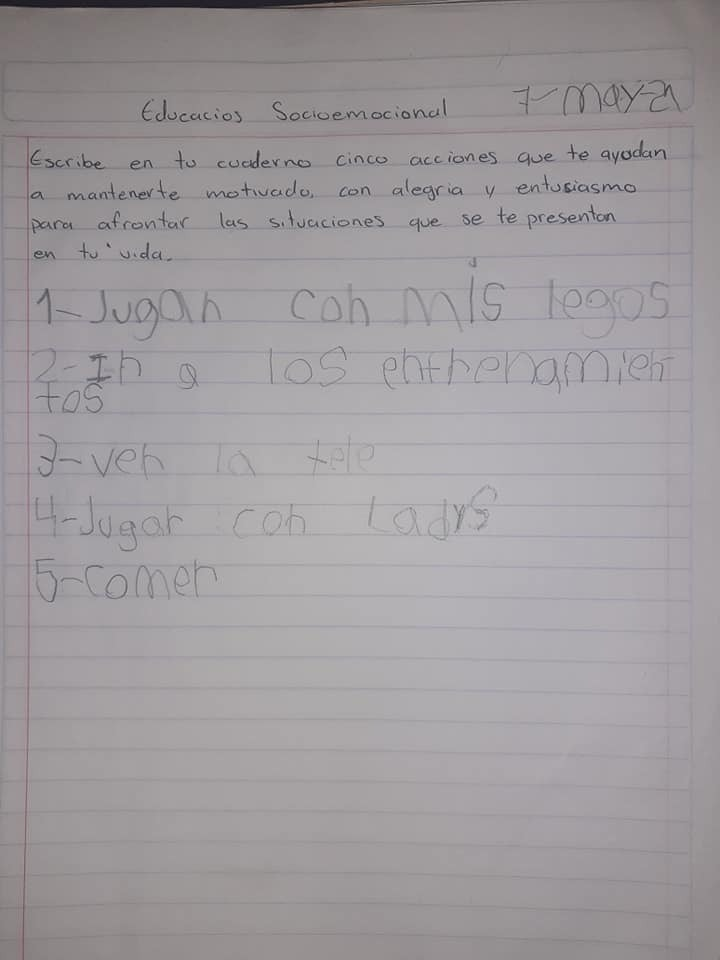 Educacios Socioemocional 7-may-21
Escribe en tu cuaderno cinco acciones que te ayudan
a mantenerte motivado, con alegria y entusiasmo
para afrontar las situaciones que se te presentan
en tu vida.
1-Jugar con mis legos
2-Ir a los entrenamien
tos
3-ver la tele
4-Jugar con Ladys
5-comer